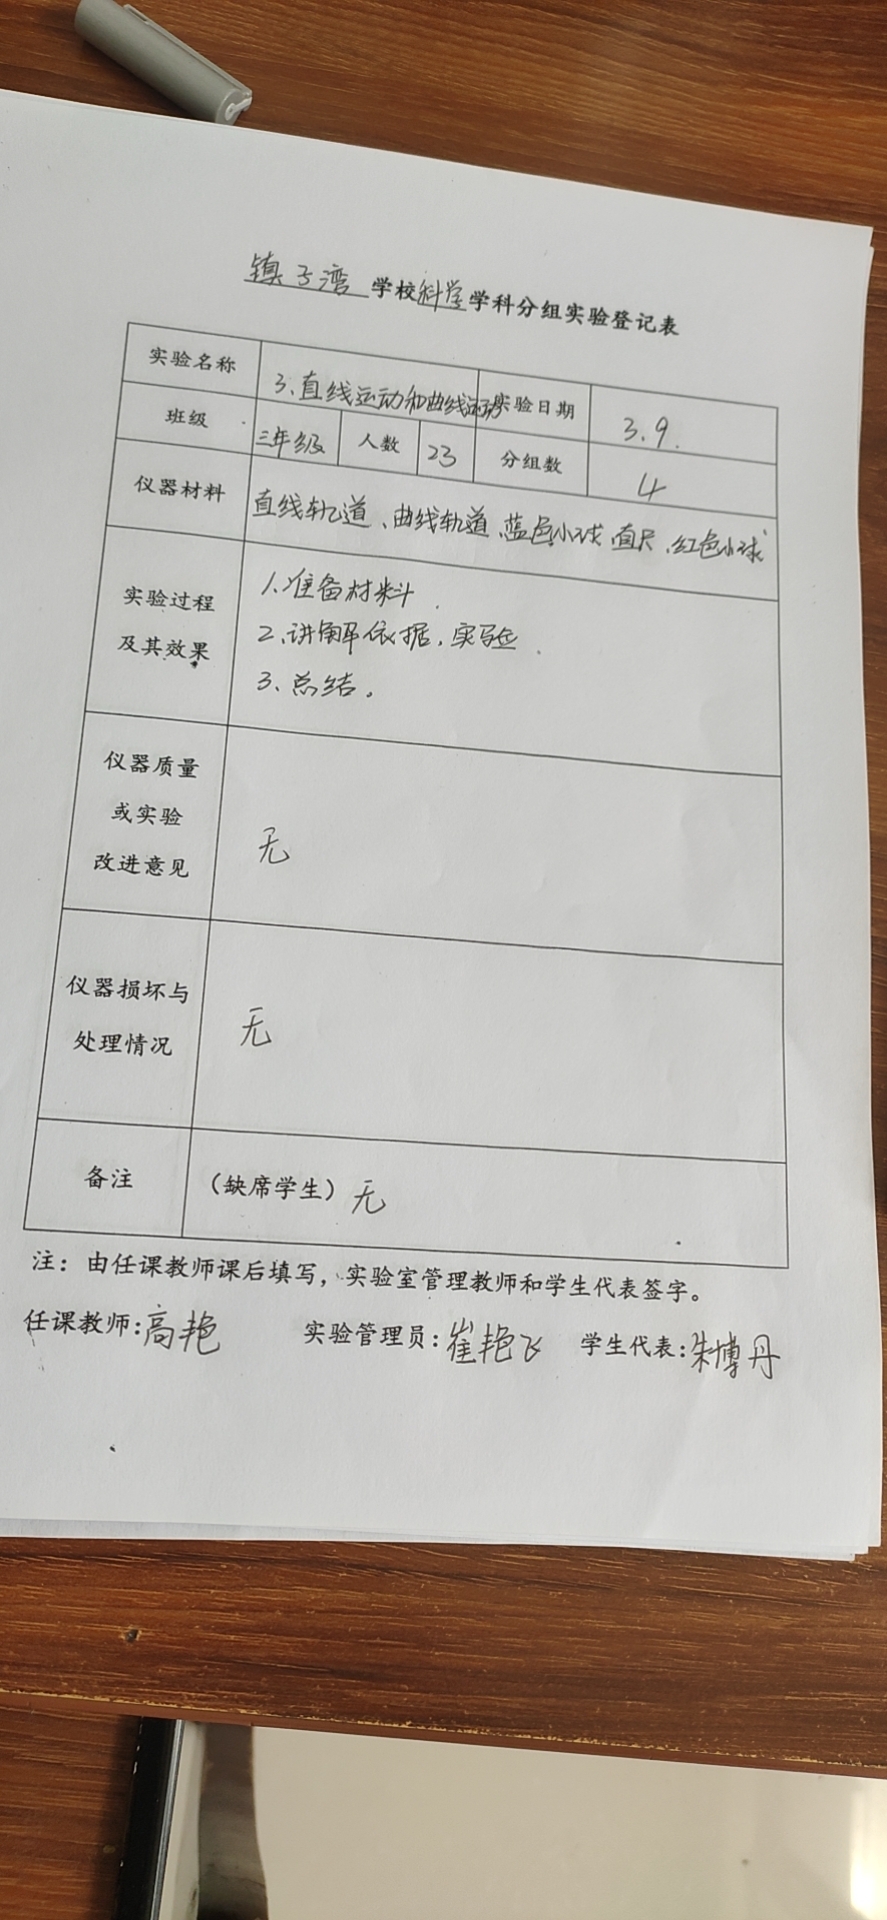 镇子湾学校科学学科分组实验登记表
实验名称 3、直线运动和曲线运动 实验日期 3.9.
班级 三年级 人数 23 分组数 4
仪器材料 直线轨道、曲线轨道、蓝色小球、直尺、红色小球
实验过程
及其效果
1、准备材料.
2、讲解依据,实验.
3、总结。
仪器质量
或实验
改进意见
无
仪器损坏与
处理情况
无
备注 (缺席学生) 无
注:由任课教师课后填写,实验室管理教师和学生代表签字。
任课教师:高艳 实验管理员:崔艳飞 学生代表:朱博丹